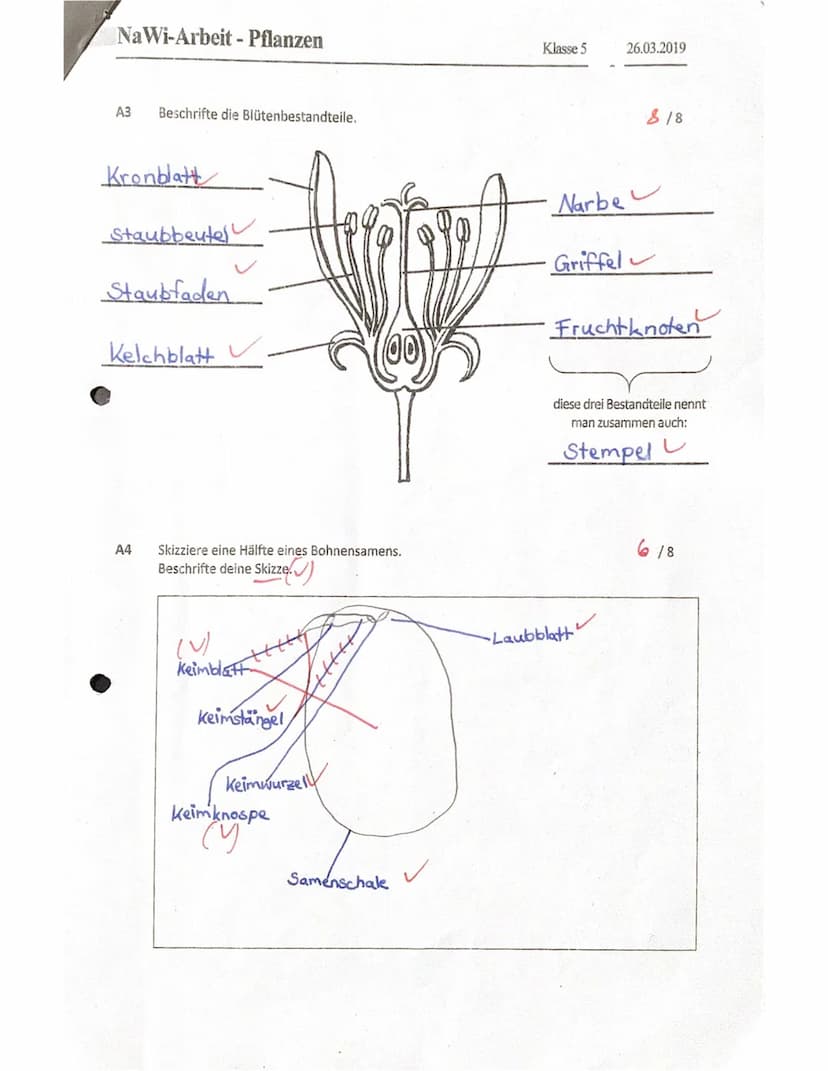 NaWi-Arbeit - Pflanzen
Klasse 5
26.03.2019
A3 Beschrifte die Blütenbestandteile.
8 /8
Kronblatt
Staubbeutel
Staubfaden
Kelchblatt
Narbe
Griffel
Fruchtknoten
diese drei Bestandteile nennt
man zusammen auch:
Stempel
A4 Skizziere eine Hälfte eines Bohnensamens.
6 /8
Beschrifte deine Skizze.
Laubblatt
Keimblatt
Keimstängel
Keimwurzel
Keimknospe
Samenschale